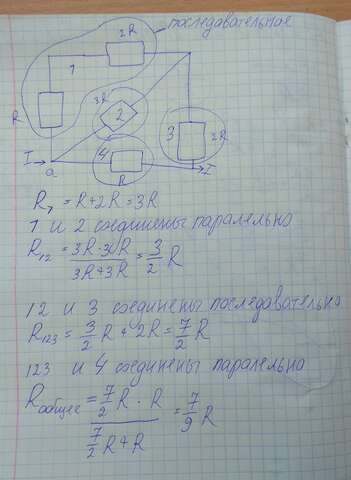 последовательное
2R
1
R
3R
2
3
2R
I
4
I
a
R
R₁ = R+2R=3R
1 и 2 соединены паралельно
R₁₂ = (3R·3R)/(3R+3R) = 3/2 R
12 и 3 соединены последовательно
R₁₂₃ = 3/2 R + 2R = 7/2 R
123 и 4 соединены паралельно
Rобщее = (7/2 R · R)/(7/2 R+R) = 7/9 R